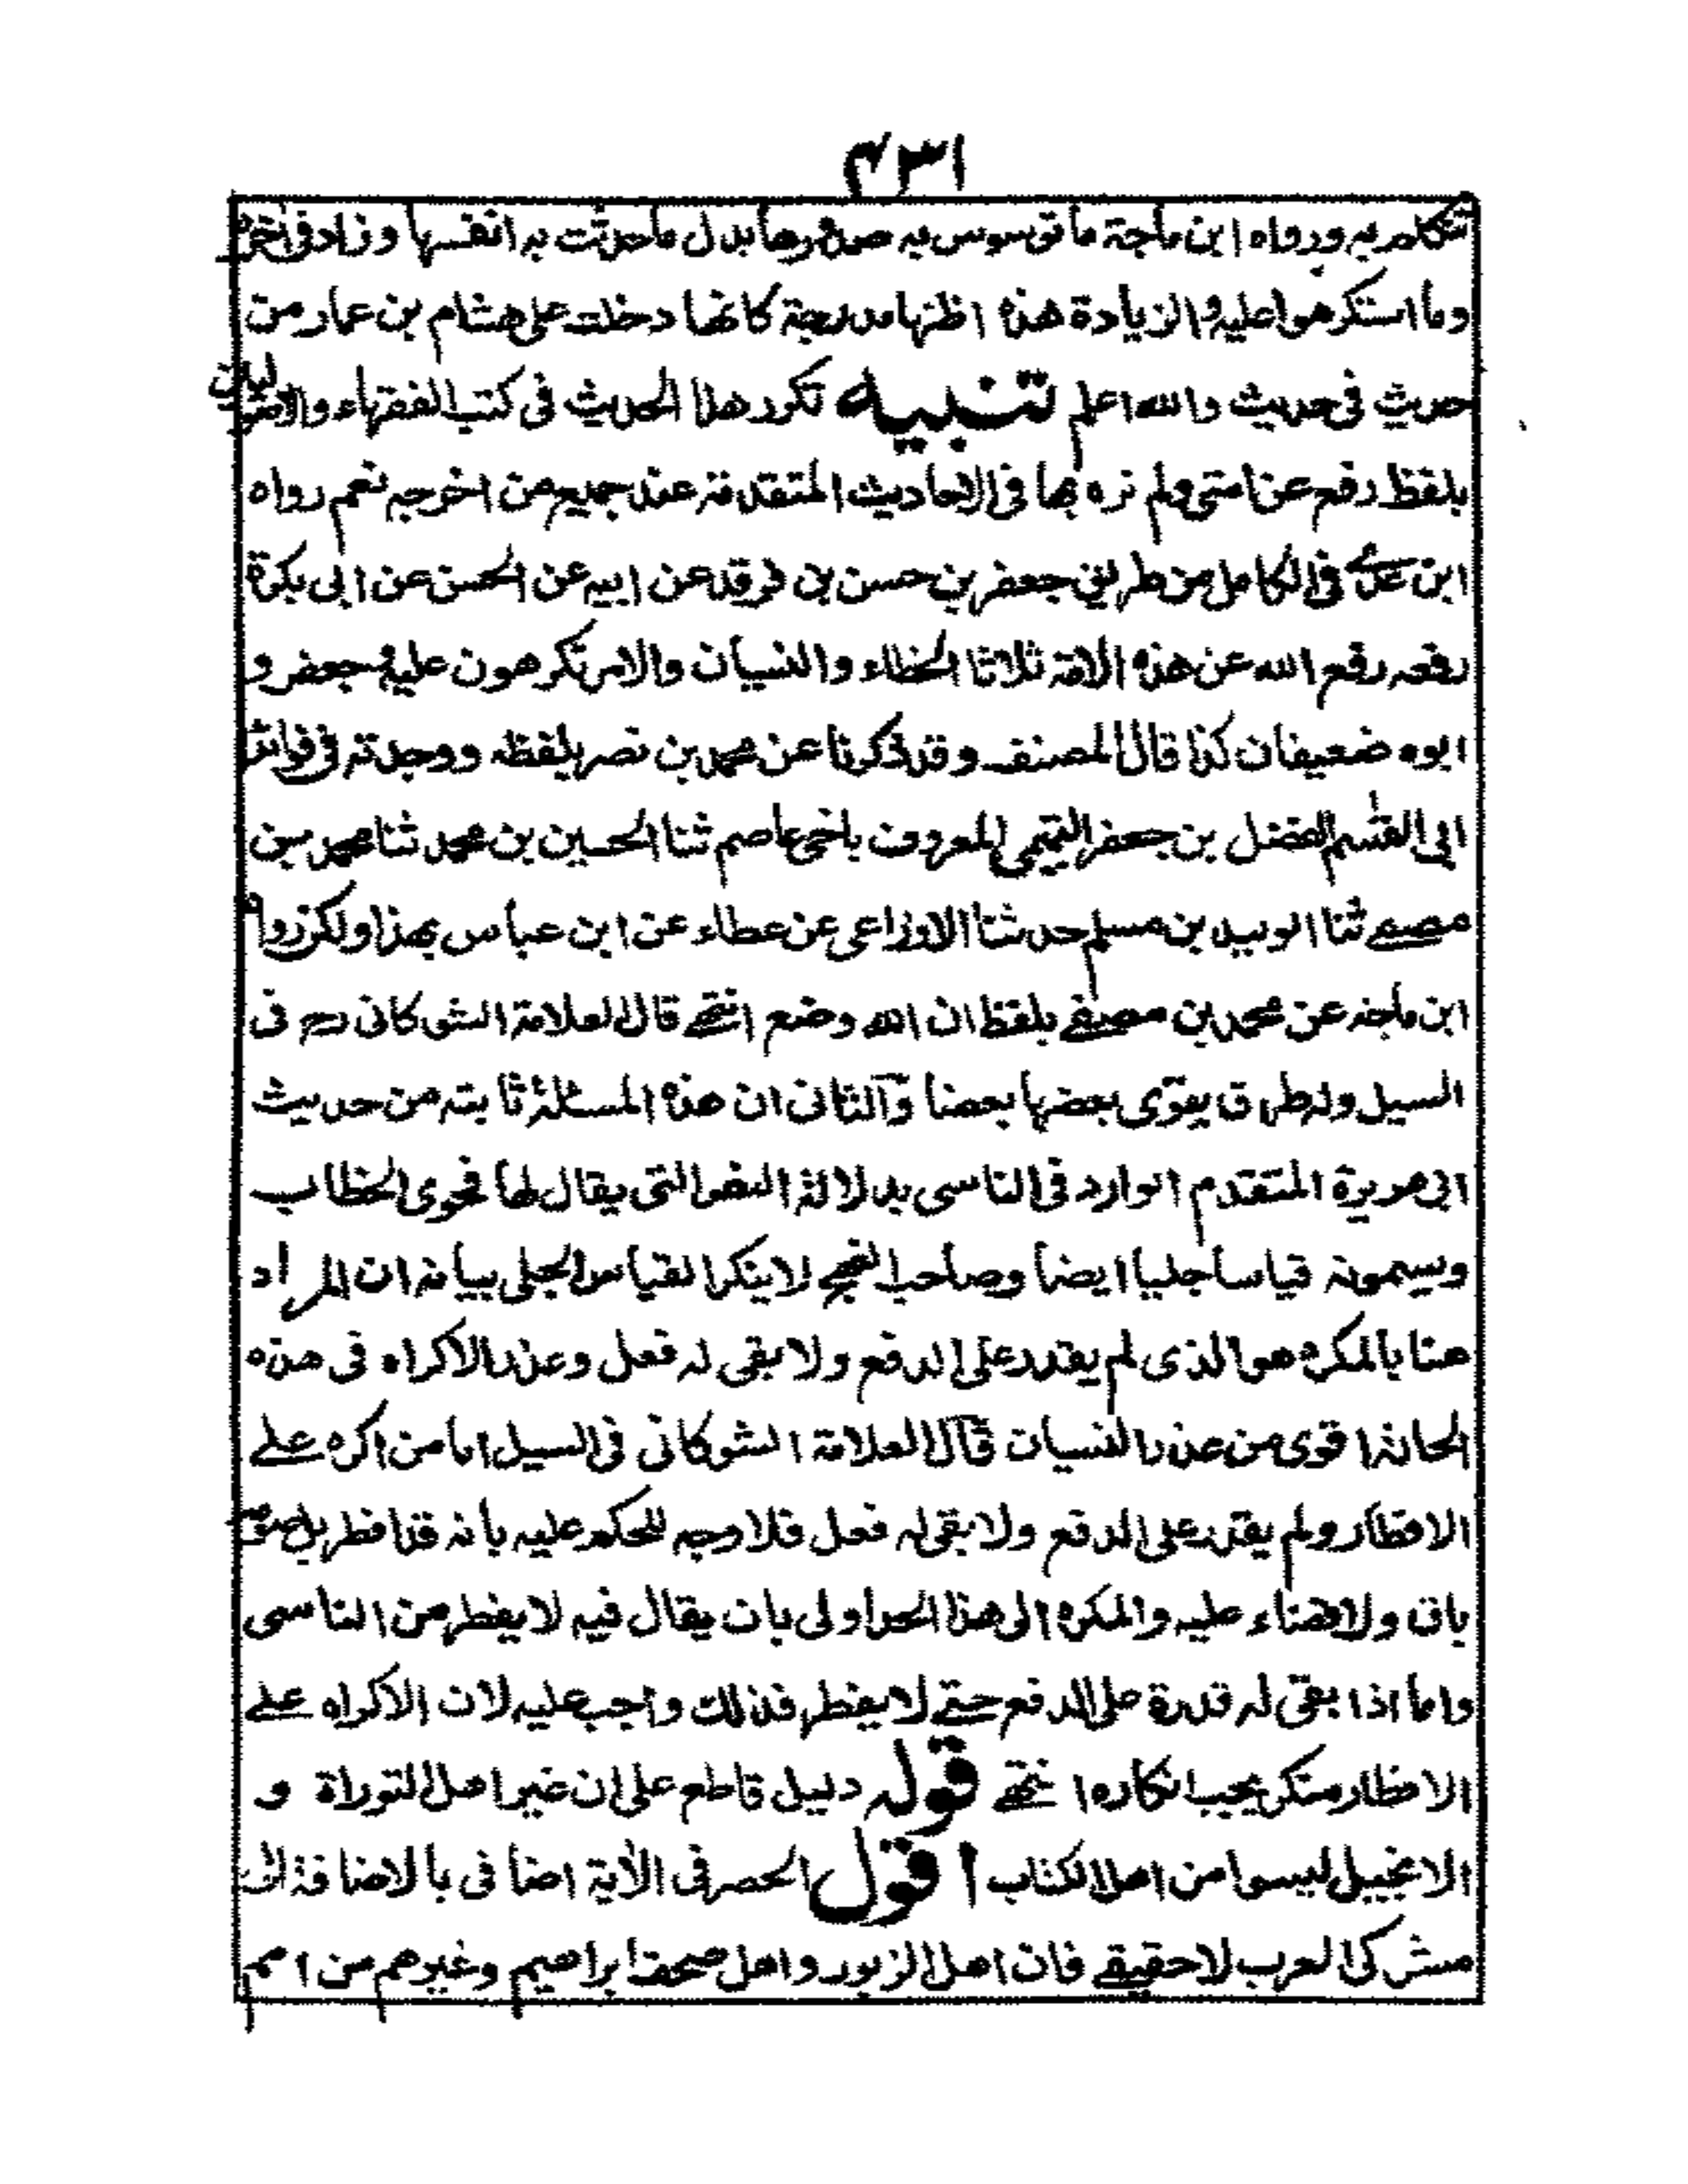 ٤٣١
تتكلم به ورواه ابن ماجة ما توسوس به صدورها بدل ما حدثت به انفسها وزاد فى اخره
وما استكرهوا عليه والزيادة هذه اظنها مدرجة كانها دخلت على هشام بن عمار من
حديث فى حديث والله اعلم تنبيه تكرر هذا الحديث فى كتب الفقهاء والاصوليين
بلفظ رفع عن امتى ولم نره بها فى الاحاديث المتقدمة عند جميع من اخرجه نعم رواه
ابن عدى فى الكامل من طريق جعفر بن حسن بن فرقد عن ابيه عن الحسن عن ابى بكرة
رفعه رفع الله عن هذه الامة ثلاثا الخطاء والنسيان والامر تكرهون عليه وجعفر و
ابوه ضعيفان كذا قال المصنف وقد ذكرنا عن محمد بن نصر بلفظه ووجدته فى فوائد
ابى القسم الفضل بن جعفر التيمى المعروف باخى عاصم ثنا الحسين بن محمد ثنا محمد بن
مصفى ثنا الوليد بن مسلم حدثنا الاوزاعى عن عطاء عن ابن عباس بهذا ولكن رواه
ابن ماجة عن محمد بن مصفى بلفظ ان الله وضع انتهى قال العلامة الشوكانى رح فى
السيل وله طرق يقوى بعضها بعضا والثانى ان هذه المسئلة ثابتة من حديث
ابى هريرة المتقدم الوارد فى الناسى بدلالة النص التى يقال لها فحوى الخطاب
ويسمونه قياسا جليا ايضا وصاحب النهج لا ينكر القياس الجلى بيانه ان المراد
هنا بالمكره هو الذى لم يقدر على الدفع ولا بقى له فعل وعذر الاكراه فى هذه
الحالة اقوى من عذر النسيان قال العلامة الشوكانى فى السيل اما من اكره على
الافطار ولم يقدر على الدفع ولا بقى له فعل فلا وجه للحكم عليه بانه قد افطر بل صومه
باق ولا قضاء عليه والمكره الى هذا الحد اولى بان يقال فيه لا يفطر من الناسى
واما اذا بقى له قدرة على الدفع حتى لا يفطر فذلك واجب عليه لان الاكراه على
الافطار منكر يجب انكاره انتهى قوله دليل قاطع على ان غير اهل التوراة و
الانجيل ليسوا من اهل الكتاب اقول الحصر فى الاية اضافى بالاضافة الى
مشركى العرب لا حقيقى فان اهل الزبور واهل صحف ابراهيم وغيرهم من امم